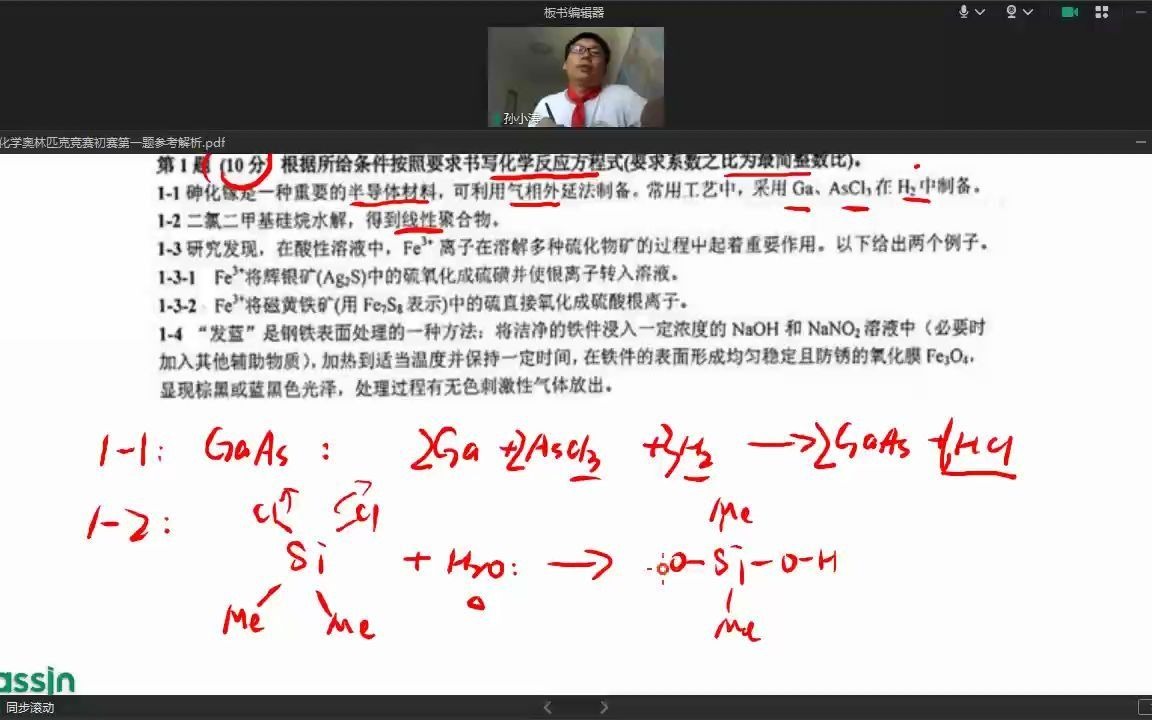 板书编辑器
孙小涛
化学奥林匹克竞赛初赛第一题参考解析.pdf
第1题 (10分) 根据所给条件按照要求书写化学反应方程式(要求系数之比为最简整数比)。
1-1 砷化镓是一种重要的半导体材料，可利用气相外延法制备。常用工艺中，采用 Ga、AsCl₃ 在 H₂ 中制备。
1-2 二氯二甲基硅烷水解，得到线性聚合物。
1-3 研究发现，在酸性溶液中，Fe³⁺ 离子在溶解多种硫化物矿的过程中起着重要作用。以下给出两个例子。
1-3-1 Fe³⁺将辉银矿(Ag₂S)中的硫氧化成硫磺并使银离子转入溶液。
1-3-2 Fe³⁺将磁黄铁矿(用 Fe₇S₈ 表示)中的硫直接氧化成硫酸根离子。
1-4 “发蓝”是钢铁表面处理的一种方法：将洁净的铁件浸入一定浓度的 NaOH 和 NaNO₂ 溶液中（必要时
加入其他辅助物质），加热到适当温度并保持一定时间，在铁件的表面形成均匀稳定且防锈的氧化膜 Fe₃O₄，
显现棕黑或蓝黑色光泽，处理过程有无色刺激性气体放出。
1-1: GaAs : 2Ga + 2AsCl₃ + 3H₂ → 2GaAs + HCl
1-2:
Cl Cl Me
Si + H₂O: → O-Si-O-H
Me Me Me
assin
同步滚动